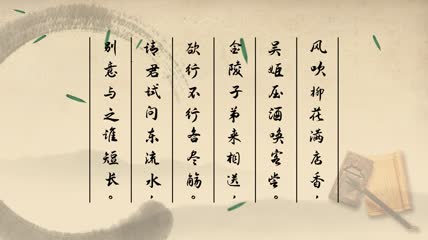 风吹柳花满店香，
吴姬压酒唤客尝。
金陵子弟来相送，
欲行不行各尽觞。
请君试问东流水，
别意与之谁短长。